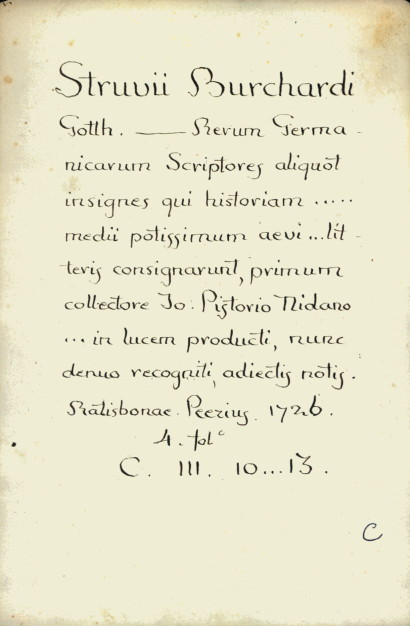 Struvii Burchardi
Gotth. —— Rerum Germa-
nicarum Scriptores aliquot
insignes qui historiam .....
medii potissimum aevi ... lit-
teris consignarunt, primum
collectore Io. Pistorio Nidano
... in lucem producti, nunc
denuo recogniti, adiectis notis.
Ratisbonae. Peezius. 1726.
4. fol c
C. III. 10...13.
C